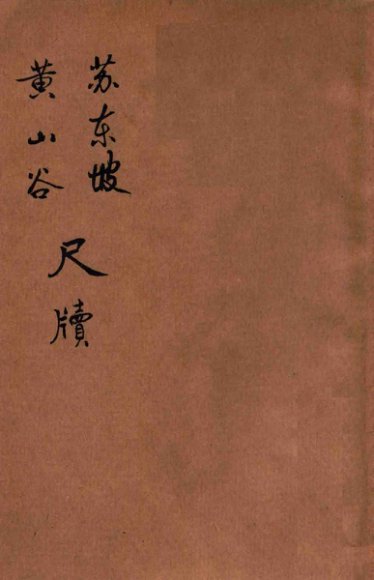 苏东坡
黄山谷
尺牍